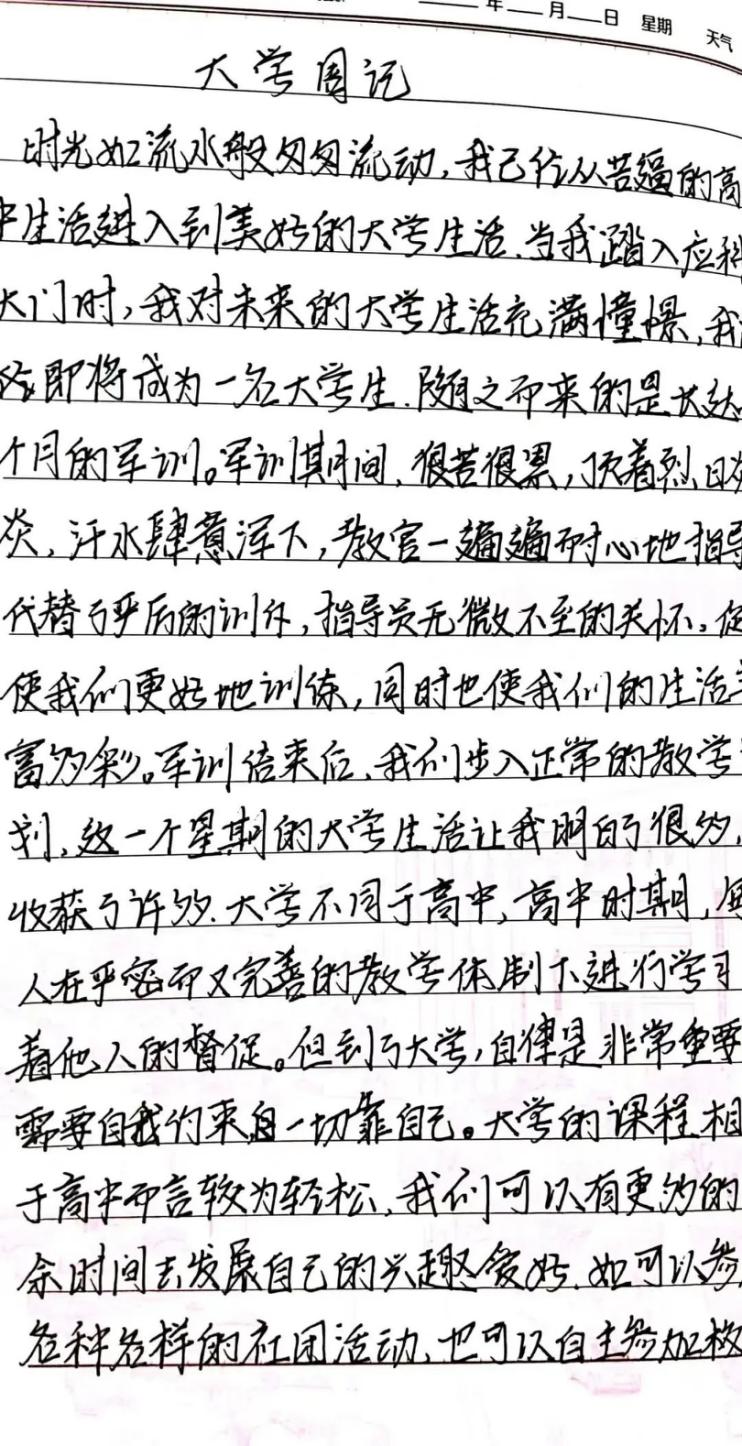 年 月 日 星期 天气
大学周记
时光如流水般匆匆流动，我已经从苦逼的高
中生活进入到美好的大学生活.当我踏入应科
大门时，我对未来的大学生活充满憧憬，我
即将成为一名大学生.随之而来的是长达
个月的军训。军训期间，很苦很累，顶着烈日炎
炎，汗水肆意浑下，教官一遍遍耐心地指导
代替了严厉的训斥，指导员无微不至的关怀。促
使我们更好地训练，同时也使我们的生活
富多彩。军训结束后，我们步入正常的教学
划，这一个星期的大学生活让我明白了很多，
收获了许多.大学不同于高中，高中时期，
人在严密而又完善的教学体制下进行学习
着他人的督促。但到了大学，自律是非常重要
需要自我约束自一切靠自己。大学的课程相
于高中而言较为轻松，我们可以有更多的
余时间去发展自己的兴趣爱好.如可以参
各种各样的社团活动，也可以自主参加校